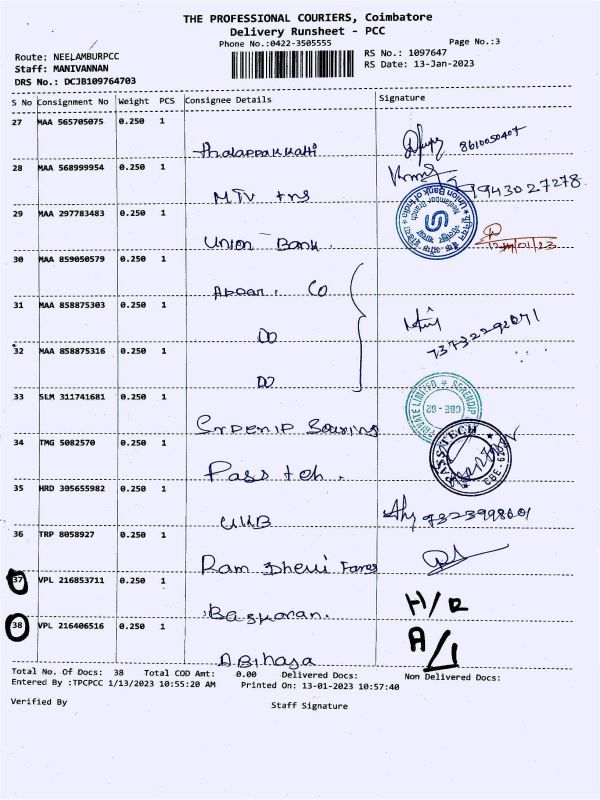 THE PROFESSIONAL COURIERS, Coimbatore
Delivery Runsheet - PCC
Phone No.:0422-3505555
Page No.:3
Route: NEELAMBURPCC
RS No.: 1097647
Staff: MANIVANNAN
RS Date: 13-Jan-2023
DRS No.: DCJB109764703
S No Consignment No Weight PCS Consignee Details Signature
27 MAA 565705075 0.250 1
8610050407
28 MAA 568999954 0.250 1
MTV
9943027278
29 MAA 297783483 0.250 1
Union Bank of India
Neelambur Branch
Union Bank
30 MAA 859050579 0.250 1
Co
31 MAA 858875303 0.250 1
DO
32 MAA 858875316 0.250 1
DO
33 SLM 311741681 0.250 1
PRIVATE LIMITED * SERENDIP
CBE - 62
34 TMG 5082570 0.250 1
PASS TECH
CBE-62
Pass teh.
35 HRD 305655982 0.250 1
UKB
36 TRP 8058927 0.250 1
Ram
37 VPL 216853711 0.250 1
H/R
Baskaran.
38 VPL 216406516 0.250 1
A/L
Total No. Of Docs: 38 Total COD Amt: 0.00 Delivered Docs: Non Delivered Docs:
Entered By :TPCPCC 1/13/2023 10:55:20 AM Printed On: 13-01-2023 10:57:40
Verified By
Staff Signature